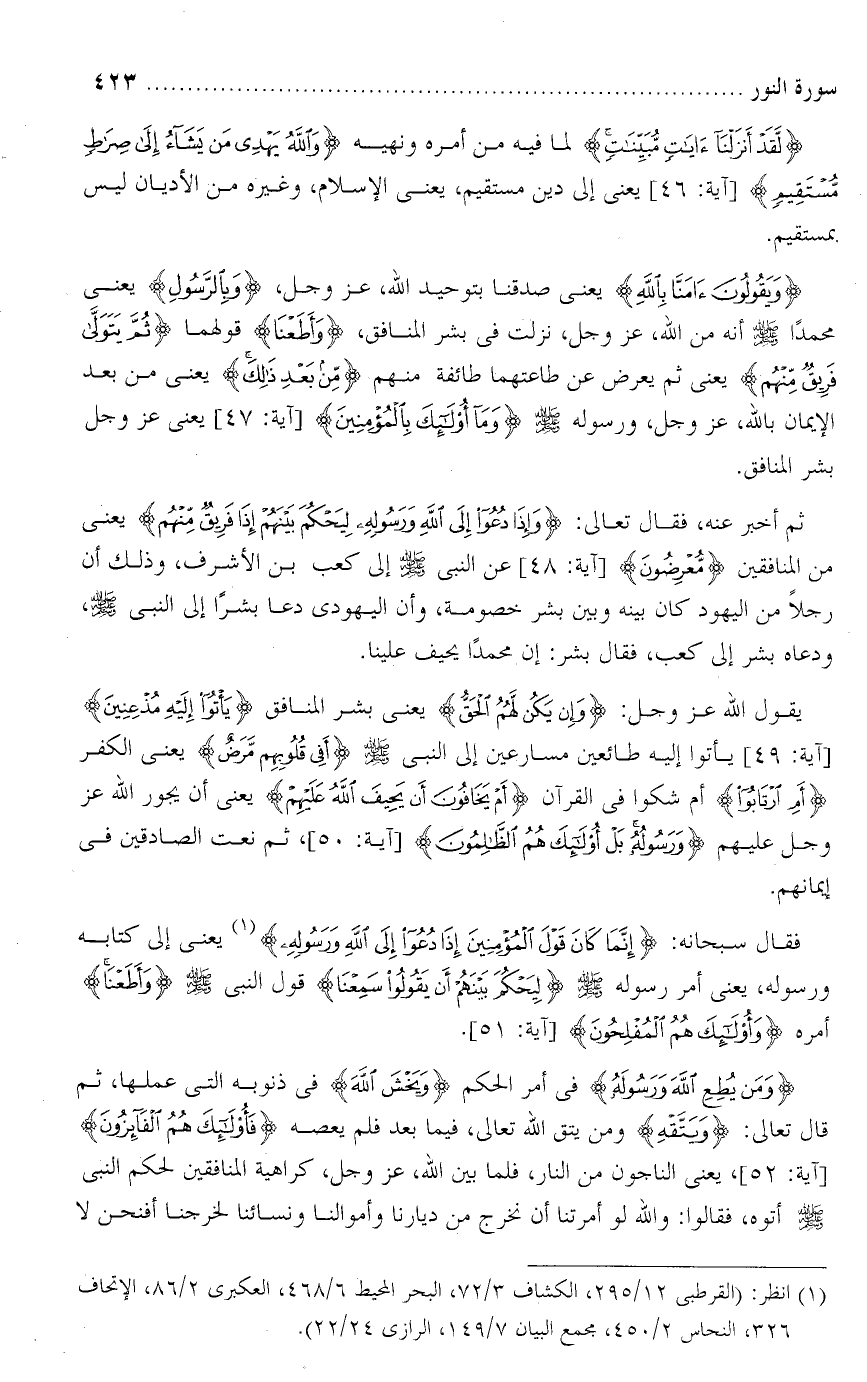 سورة النور ........................................................................ ٤٢٣
﴿لَّقَدْ أَنزَلْنَآ ءَايَٰتٍ مُّبَيِّنَٰتٍۚ﴾ لما فيه من أمره ونهيه ﴿وَٱللَّهُ يَهْدِى مَن يَشَآءُ إِلَىٰ صِرَٰطٍ
مُّسْتَقِيمٍ﴾ [آية: ٤٦] يعنى إلى دين مستقيم، يعنى الإسلام، وغيره من الأديان ليس
بمستقيم.
﴿وَيَقُولُونَ ءَامَنَّا بِٱللَّهِ﴾ يعنى صدقنا بتوحيد الله، عز وجل، ﴿وَبِٱلرَّسُولِ﴾ يعنى
محمدًا ﷺ أنه من الله، عز وجل، نزلت فى بشر المنافق، ﴿وَأَطَعْنَا﴾ قولهما ﴿ثُمَّ يَتَوَلَّىٰ
فَرِيقٌ مِّنْهُم﴾ يعنى ثم يعرض عن طاعتهما طائفة منهم ﴿مِّنۢ بَعْدِ ذَٰلِكَۚ﴾ يعنى من بعد
الإيمان بالله، عز وجل، ورسوله ﷺ ﴿وَمَآ أُوْلَٰٓئِكَ بِٱلْمُؤْمِنِينَ﴾ [آية: ٤٧] يعنى عز وجل
بشر المنافق.
ثم أخبر عنه، فقال تعالى: ﴿وَإِذَا دُعُوٓاْ إِلَى ٱللَّهِ وَرَسُولِهِۦ لِيَحْكُمَ بَيْنَهُمْ إِذَا فَرِيقٌ مِّنْهُم﴾ يعنى
من المنافقين ﴿مُّعْرِضُونَ﴾ [آية: ٤٨] عن النبى ﷺ إلى كعب بن الأشرف، وذلك أن
رجلاً من اليهود كان بينه وبين بشر خصومة، وأن اليهودى دعا بشرًا إلى النبى ﷺ،
ودعاه بشر إلى كعب، فقال بشر: إن محمدًا يحيف علينا.
يقول الله عز وجل: ﴿وَإِن يَكُن لَّهُمُ ٱلْحَقُّ﴾ يعنى بشر المنافق ﴿يَأْتُوٓاْ إِلَيْهِ مُذْعِنِينَ﴾
[آية: ٤٩] يأتوا إليه طائعين مسارعين إلى النبى ﷺ ﴿أَفِى قُلُوبِهِم مَّرَضٌ﴾ يعنى الكفر
﴿أَمِ ٱرْتَابُوٓاْ﴾ أم شكوا فى القرآن ﴿أَمْ يَخَافُونَ أَن يَحِيفَ ٱللَّهُ عَلَيْهِمْ﴾ يعنى أن يجور الله عز
وجل عليهم ﴿وَرَسُولُهُۥۚ بَلْ أُوْلَٰٓئِكَ هُمُ ٱلظَّٰلِمُونَ﴾ [آية: ٥٠]، ثم نعت الصادقين فى
إيمانهم.
فقال سبحانه: ﴿إِنَّمَا كَانَ قَوْلَ ٱلْمُؤْمِنِينَ إِذَا دُعُوٓاْ إِلَى ٱللَّهِ وَرَسُولِهِۦ﴾(١) يعنى إلى كتابه
ورسوله، يعنى أمر رسوله ﷺ ﴿لِيَحْكُمَ بَيْنَهُمْ أَن يَقُولُواْ سَمِعْنَا﴾ قول النبى ﷺ ﴿وَأَطَعْنَاۚ﴾
أمره ﴿وَأُوْلَٰٓئِكَ هُمُ ٱلْمُفْلِحُونَ﴾ [آية: ٥١].
﴿وَمَن يُطِعِ ٱللَّهَ وَرَسُولَهُۥ﴾ فى أمر الحكم ﴿وَيَخْشَ ٱللَّهَ﴾ فى ذنوبه التى عملها، ثم
قال تعالى: ﴿وَيَتَّقْهِ﴾ ومن يتق الله تعالى، فيما بعد فلم يعصه ﴿فَأُوْلَٰٓئِكَ هُمُ ٱلْفَآئِزُونَ﴾
[آية: ٥٢]، يعنى الناجون من النار، فلما بين الله، عز وجل، كراهية المنافقين لحكم النبى
ﷺ أتوه، فقالوا: والله لو أمرتنا أن نخرج من ديارنا وأموالنا ونسائنا لخرجنا أفنحن لا
(١) انظر: (القرطبى ٢٩٥/١٢، الكشاف ٧٢/٣، البحر المحيط ٤٦٨/٦، العكبرى ٨٦/٢، الإتحاف
٣٢٦، النحاس ٤٥٠/٢، مجمع البيان ١٤٩/٧، الرازى ٢٢/٢٤).